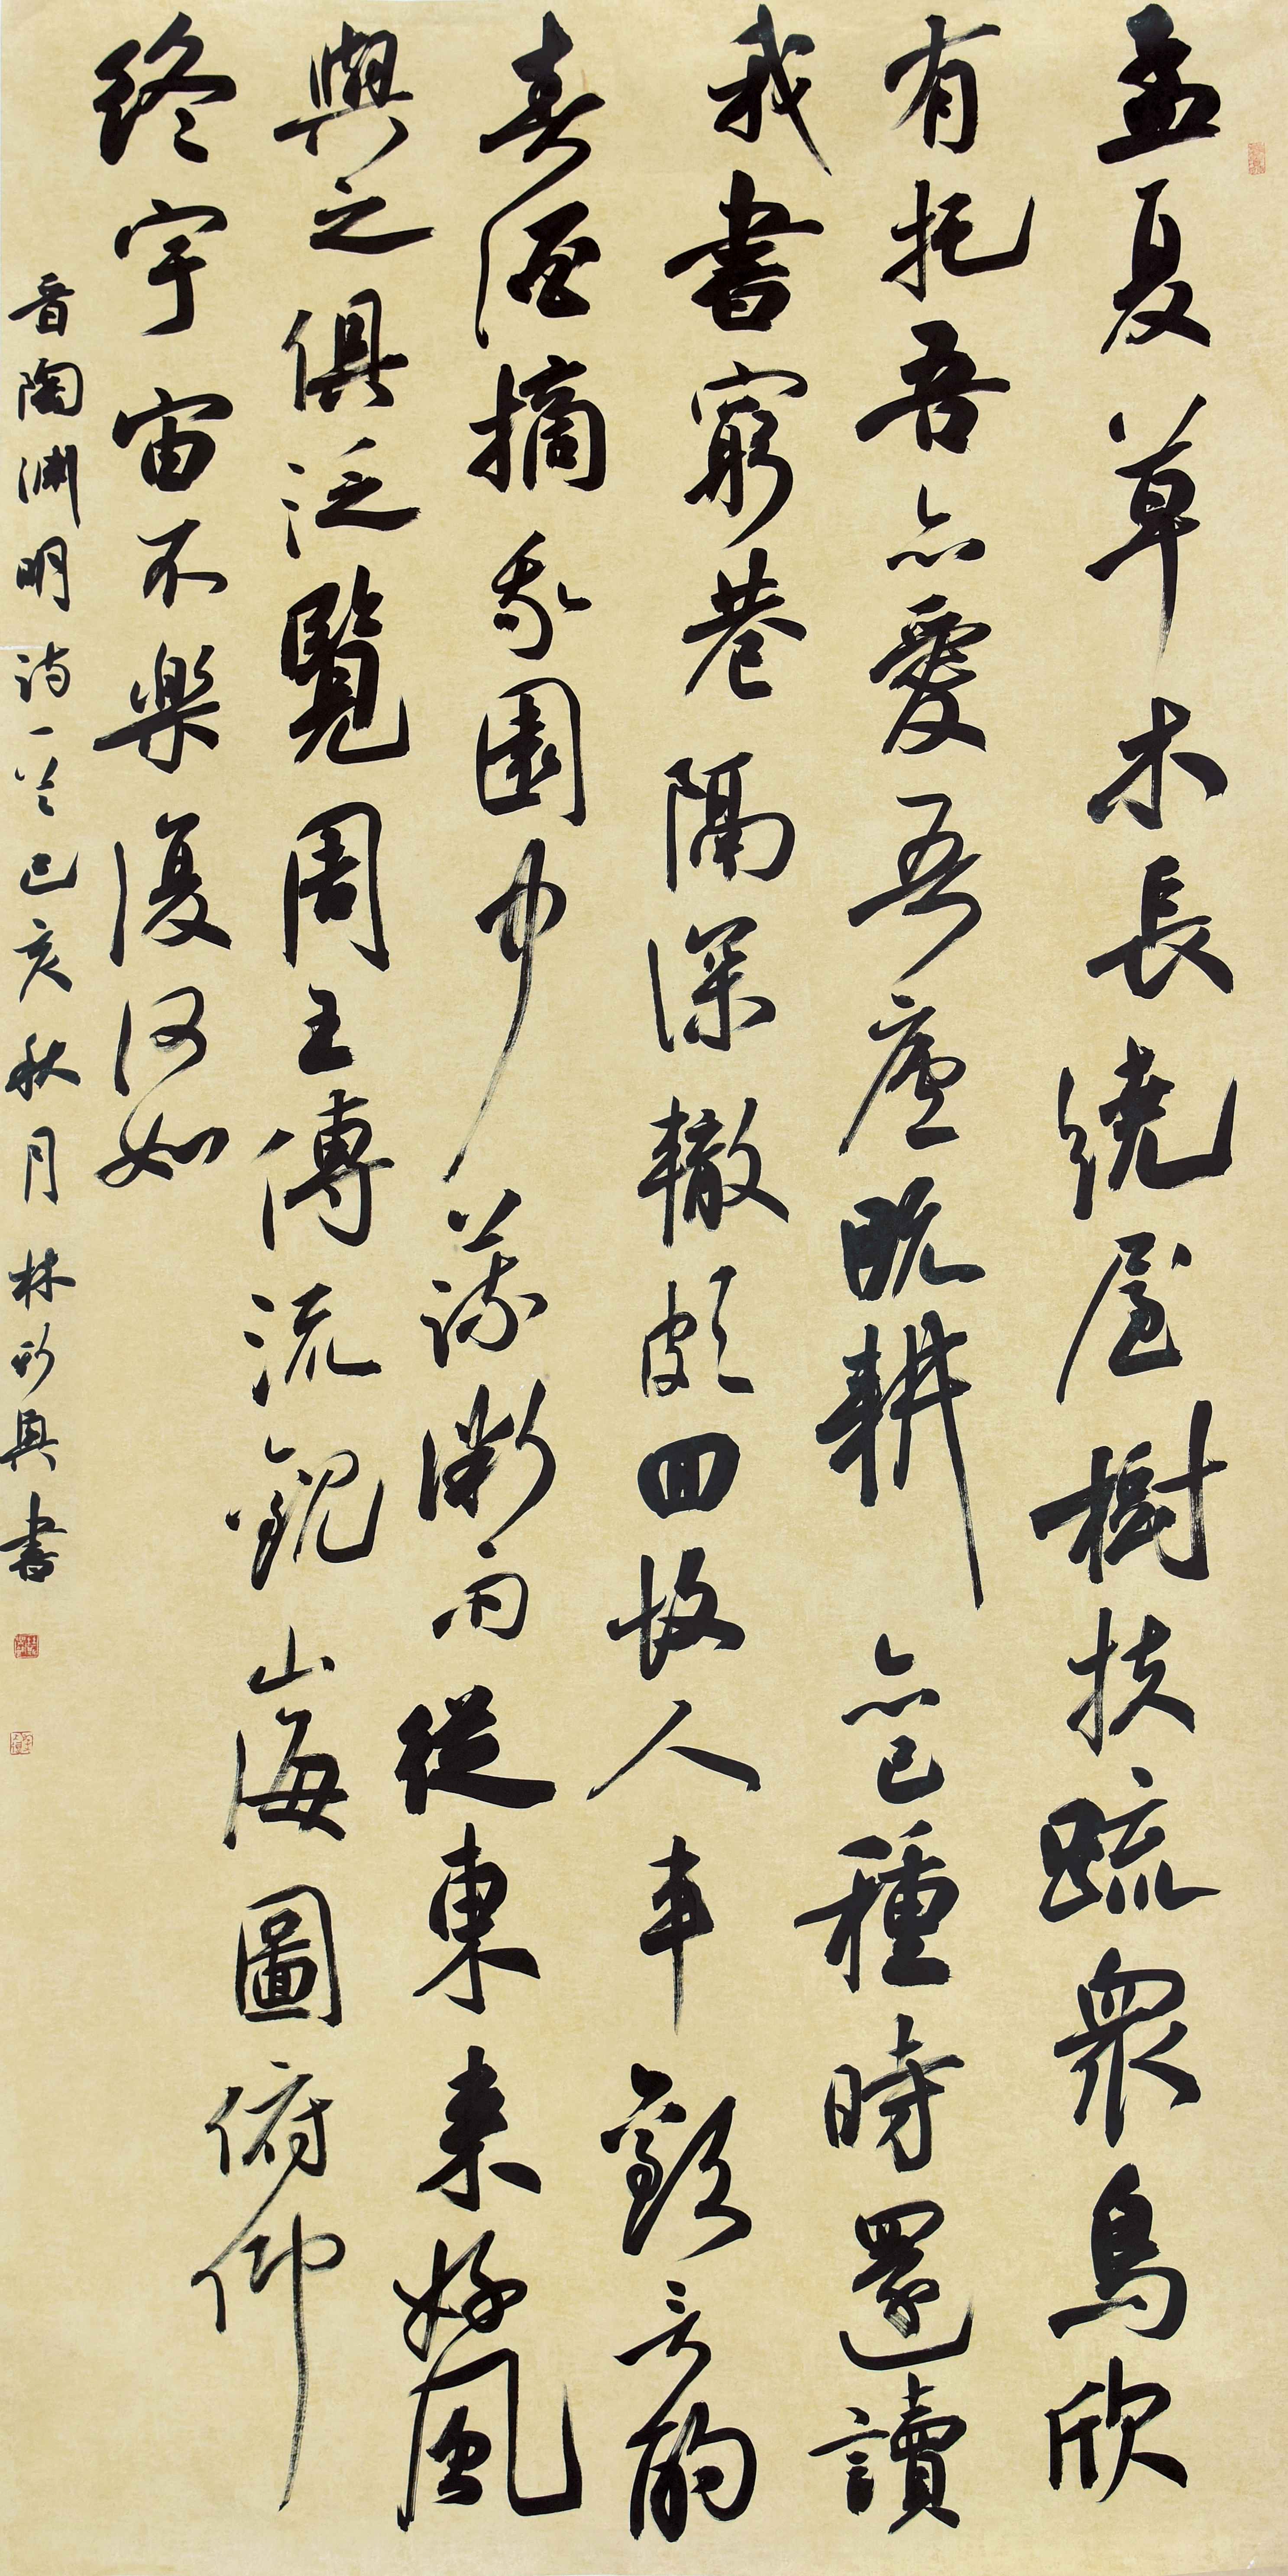 孟夏草木長繞屋樹扶疏衆鳥欣
有托吾亦愛吾廬既耕亦已種時還讀
我書窮巷隔深轍頗回故人車歡言酌
春酒摘我園中蔬微雨從東來好風
與之俱泛覽周王傳流觀山海圖俯仰
終宇宙不樂復何如
晉陶淵明詩一首己亥秋月林 興書